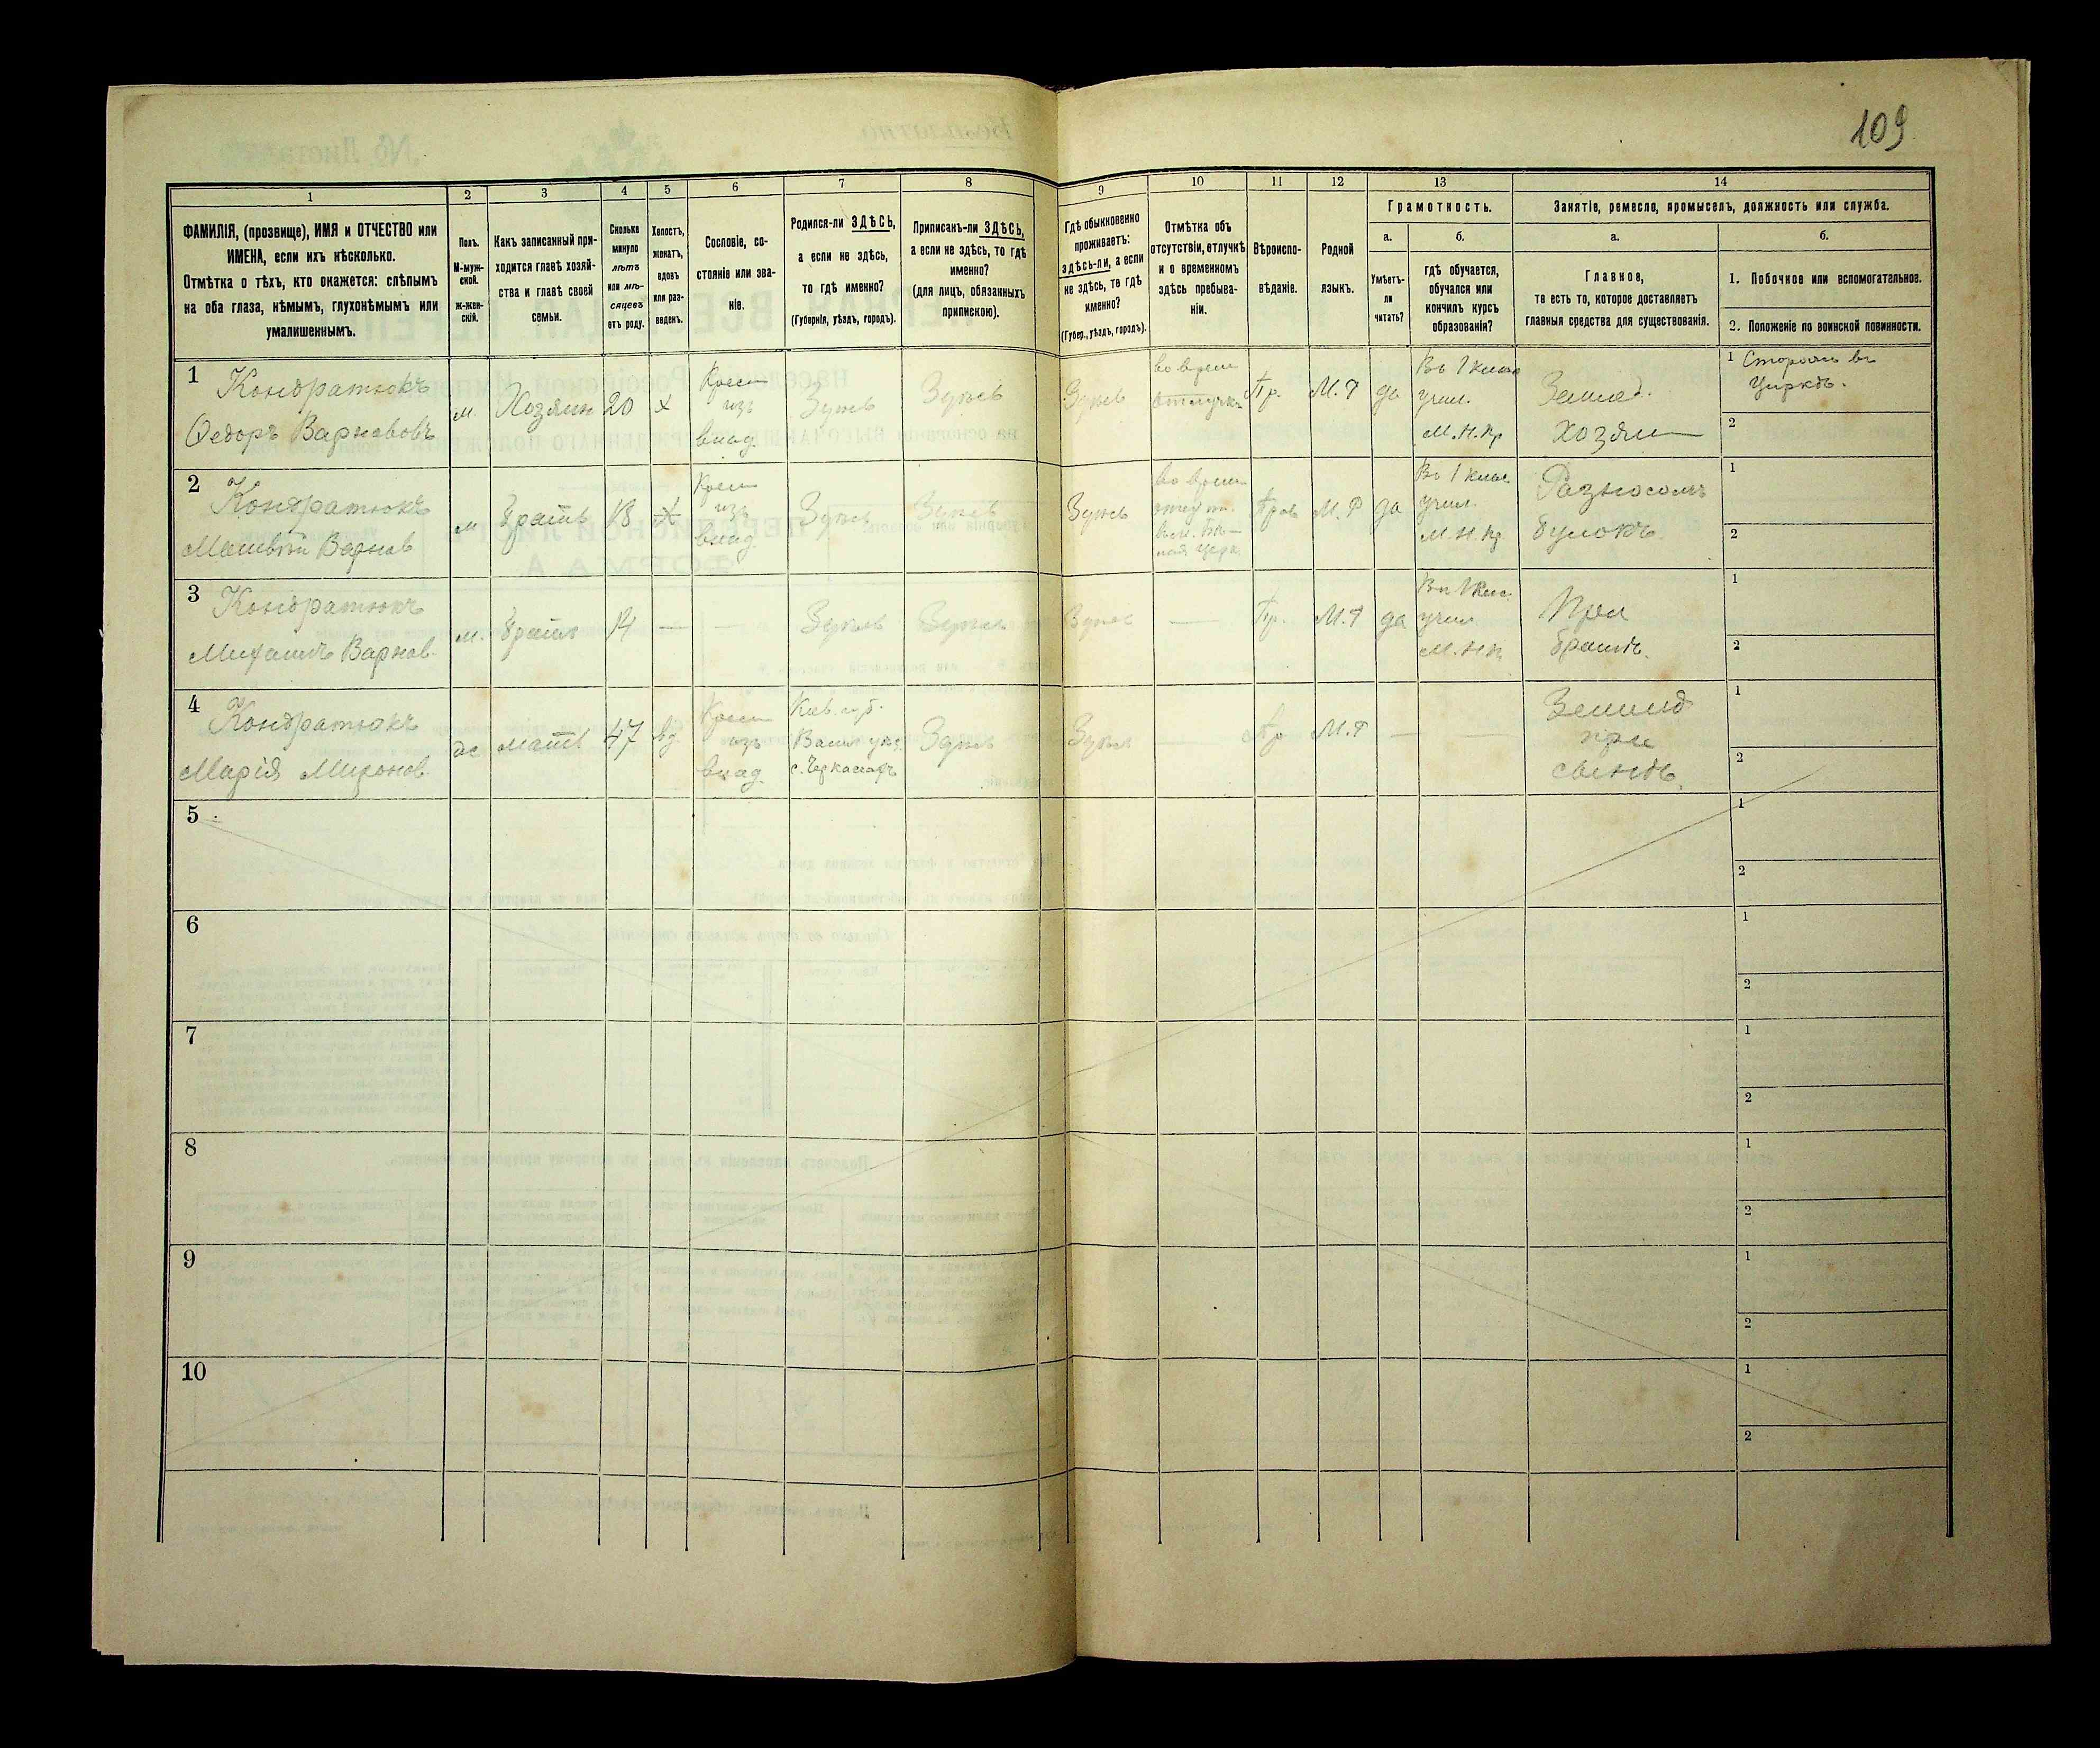 109
1
2
3
4
5
6
7
8
9
10
11
12
13
14
ФАМИЛІЯ, (прозвище), ИМЯ и ОТЧЕСТВО или
ИМЕНА, если ихъ нѣсколько.
Отмѣтка о тѣхъ, кто окажется: слѣпымъ
на оба глаза, нѣмымъ, глухонѣмымъ или
умалишеннымъ.
Полъ.
М-муж-
ской.
Ж-жен-
скій.
Какъ записанный при-
ходится главѣ хозяй-
ства и главѣ своей
семьи.
Сколько
минуло
лѣтъ
или мѣ-
сяцевъ
отъ роду.
Холостъ,
женатъ,
вдовъ
или раз-
веденъ.
Сословіе, со-
стояніе или зва-
ніе.
Родился-ли ЗДѢСЬ,
а если не здѣсь,
то гдѣ именно?
(Губернія, уѣздъ, городъ).
Приписанъ-ли ЗДѢСЬ,
а если не здѣсь, то гдѣ
именно?
(для лицъ, обязанныхъ
припискою).
Гдѣ обыкновенно
проживаетъ:
здѣсь-ли, а если
не здѣсь, то гдѣ
именно?
(Губер., уѣздъ, городъ).
Отмѣтка объ
отсутствіи, отлучкѣ
и о временномъ
здѣсь пребыва-
ніи.
Вѣроиспо-
вѣданіе.
Родной
языкъ.
Грамотность.
а.
Умѣетъ-
ли
читать?
б.
гдѣ обучается,
обучался или
кончилъ курсъ
образованія?
Занятіе, ремесло, промыселъ, должность или служба.
а.
Главное,
то есть то, которое доставляетъ
главныя средства для существованія.
б.
1. Побочное или вспомогательное.
2. Положеніе по воинской повинности.
1
Кондратюкъ
Ѳедоръ Варнавовъ
м.
Хозяин
20
х
Крест
изъ
влад.
Здѣсь
Здѣсь
Здѣсь
во врем
отлучк
Пр.
М.Р
да
Въ 1 клас
учил.
М.Н.Пр
Землед.
Хозяин
1 Сторожъ въ
Церкв.
2
2
Кондратюкъ
Матвѣй Варнав
м
братъ
18
х
Крест
изъ
влад.
Здѣсь
Здѣсь
Здѣсь
во врем
Прав
М.Р
да
Въ 1 клас
учил.
М.Н.Пр
Разносомъ
булокъ
1
2
3
Кондратюкъ
Михаилъ Варнав.
м.
братъ
14
—
—
Здѣсь
Здѣсь
Здѣсь
—
Пр.
М.Р
да
Въ 1 клас
учил
М.Н.П
При
братѣ.
1
2
4
Кондратюкъ
Марія Миронов
ж
мать
47
вд
Крест
изъ
влад.
Кіев. губ.
Васил уѣз.
с. Черкасахъ
Здѣсь
Здѣсь
—
Пр
М.Р
—
—
Землед
при
сынѣ.
1
2
5
1
2
6
1
2
7
1
2
8
1
2
9
1
2
10
1
2